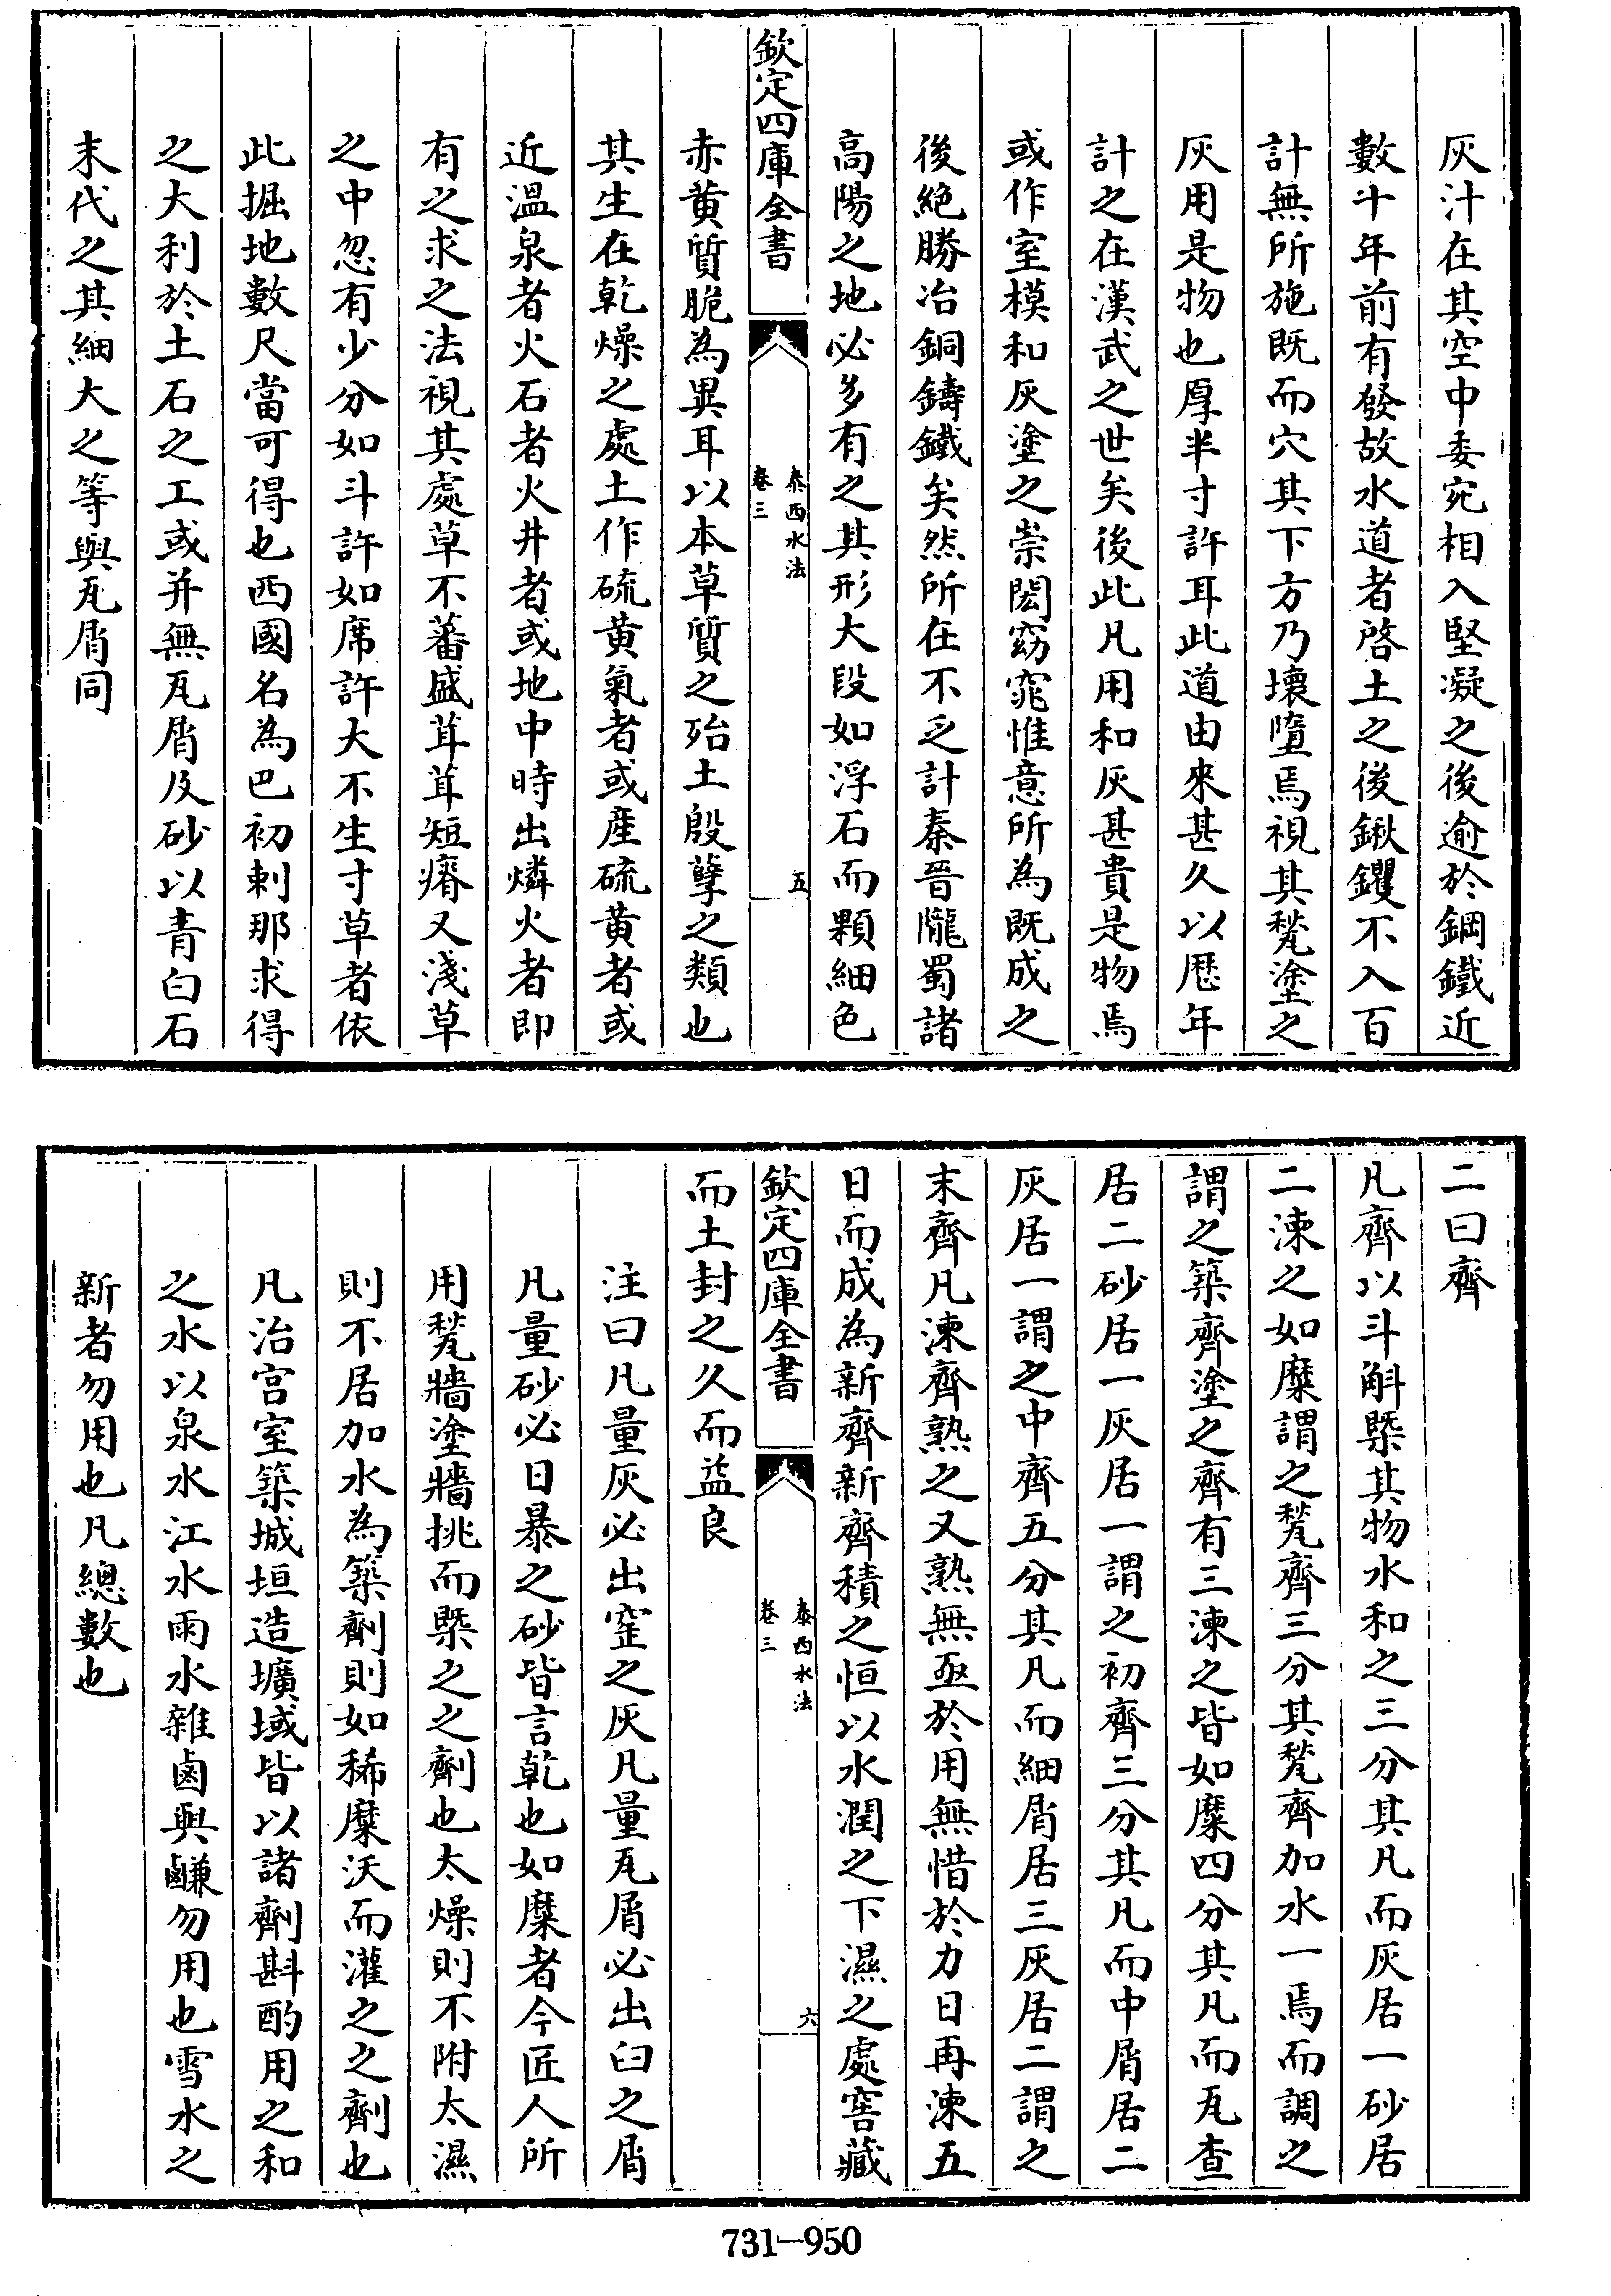 灰汁在其空中委宛相入堅凝之後逾於鋼鐵近
數十年前有發故水道者啓土之後鍬钁不入百
計無所施既而穴其下方乃壞墮焉視其甃塗之
灰用是物也厚半寸許耳此道由來甚久以厯年
計之在漢武之世矣後此凡用和灰甚貴是物焉
或作室模和灰塗之崇閎窈窕惟意所為既成之
後絶勝冶銅鑄鐵矣然所在不乏計秦晉隴蜀諸
高陽之地必多有之其形大段如浮石而顆細色
欽定四庫全書
泰西水法
卷三
五
赤黄質脆為異耳以本草質之殆土殷孽之類也
其生在乾燥之處土作硫黄氣者或産硫黄者或
近温泉者火石者火井者或地中時出燐火者即
有之求之法視其處草不蕃盛茸茸短瘠又淺草
之中忽有少分如斗許如席許大不生寸草者依
此掘地數尺當可得也西國名為巴初剌那求得
之大利於土石之工或并無瓦屑及砂以青白石
末代之其細大之等與瓦屑同
二曰齊
凡齊以斗斛槩其物水和之三分其凡而灰居一砂居
二湅之如糜謂之甃齊三分其甃齊加水一焉而調之
謂之築齊塗之齊有三湅之皆如糜四分其凡而瓦查
居二砂居一灰居一謂之初齊三分其凡而中屑居二
灰居一謂之中齊五分其凡而細屑居三灰居二謂之
末齊凡湅齊熟之又熟無亟於用無惜於力日再湅五
日而成為新齊新齊積之恒以水潤之下濕之處窖藏
欽定四庫全書
泰西水法
卷三
六
而土封之久而益良
注曰凡量灰必出窰之灰凡量瓦屑必出臼之屑
凡量砂必日暴之砂皆言乾也如糜者今匠人所
用甃牆塗牆挑而槩之之劑也太燥則不附太濕
則不居加水為築劑則如稀糜沃而灌之之劑也
凡治宫室築城垣造壙域皆以諸劑斟酌用之和
之水以泉水江水雨水雜鹵與鹻勿用也雪水之
新者勿用也凡總數也
731-950